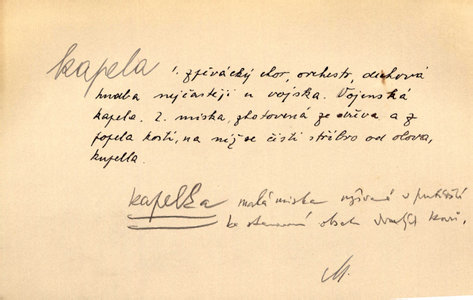 kapela 1. zpěvácký chor, orchestr, duchová
hudba nejčastěji u vojska. Vojenská
kapela. 2. miska, zhotovená ze dřeva a z
popela kostí, na níž se čistí stříbro od olova,
kupella.
kapelka malá miska užívaná v prubířství
ke stanovení obsahu drahých kovů.
M.